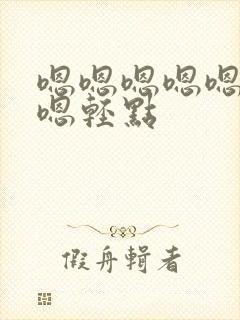 嗯嗯嗯嗯嗯
嗯輕點
假舟輯者